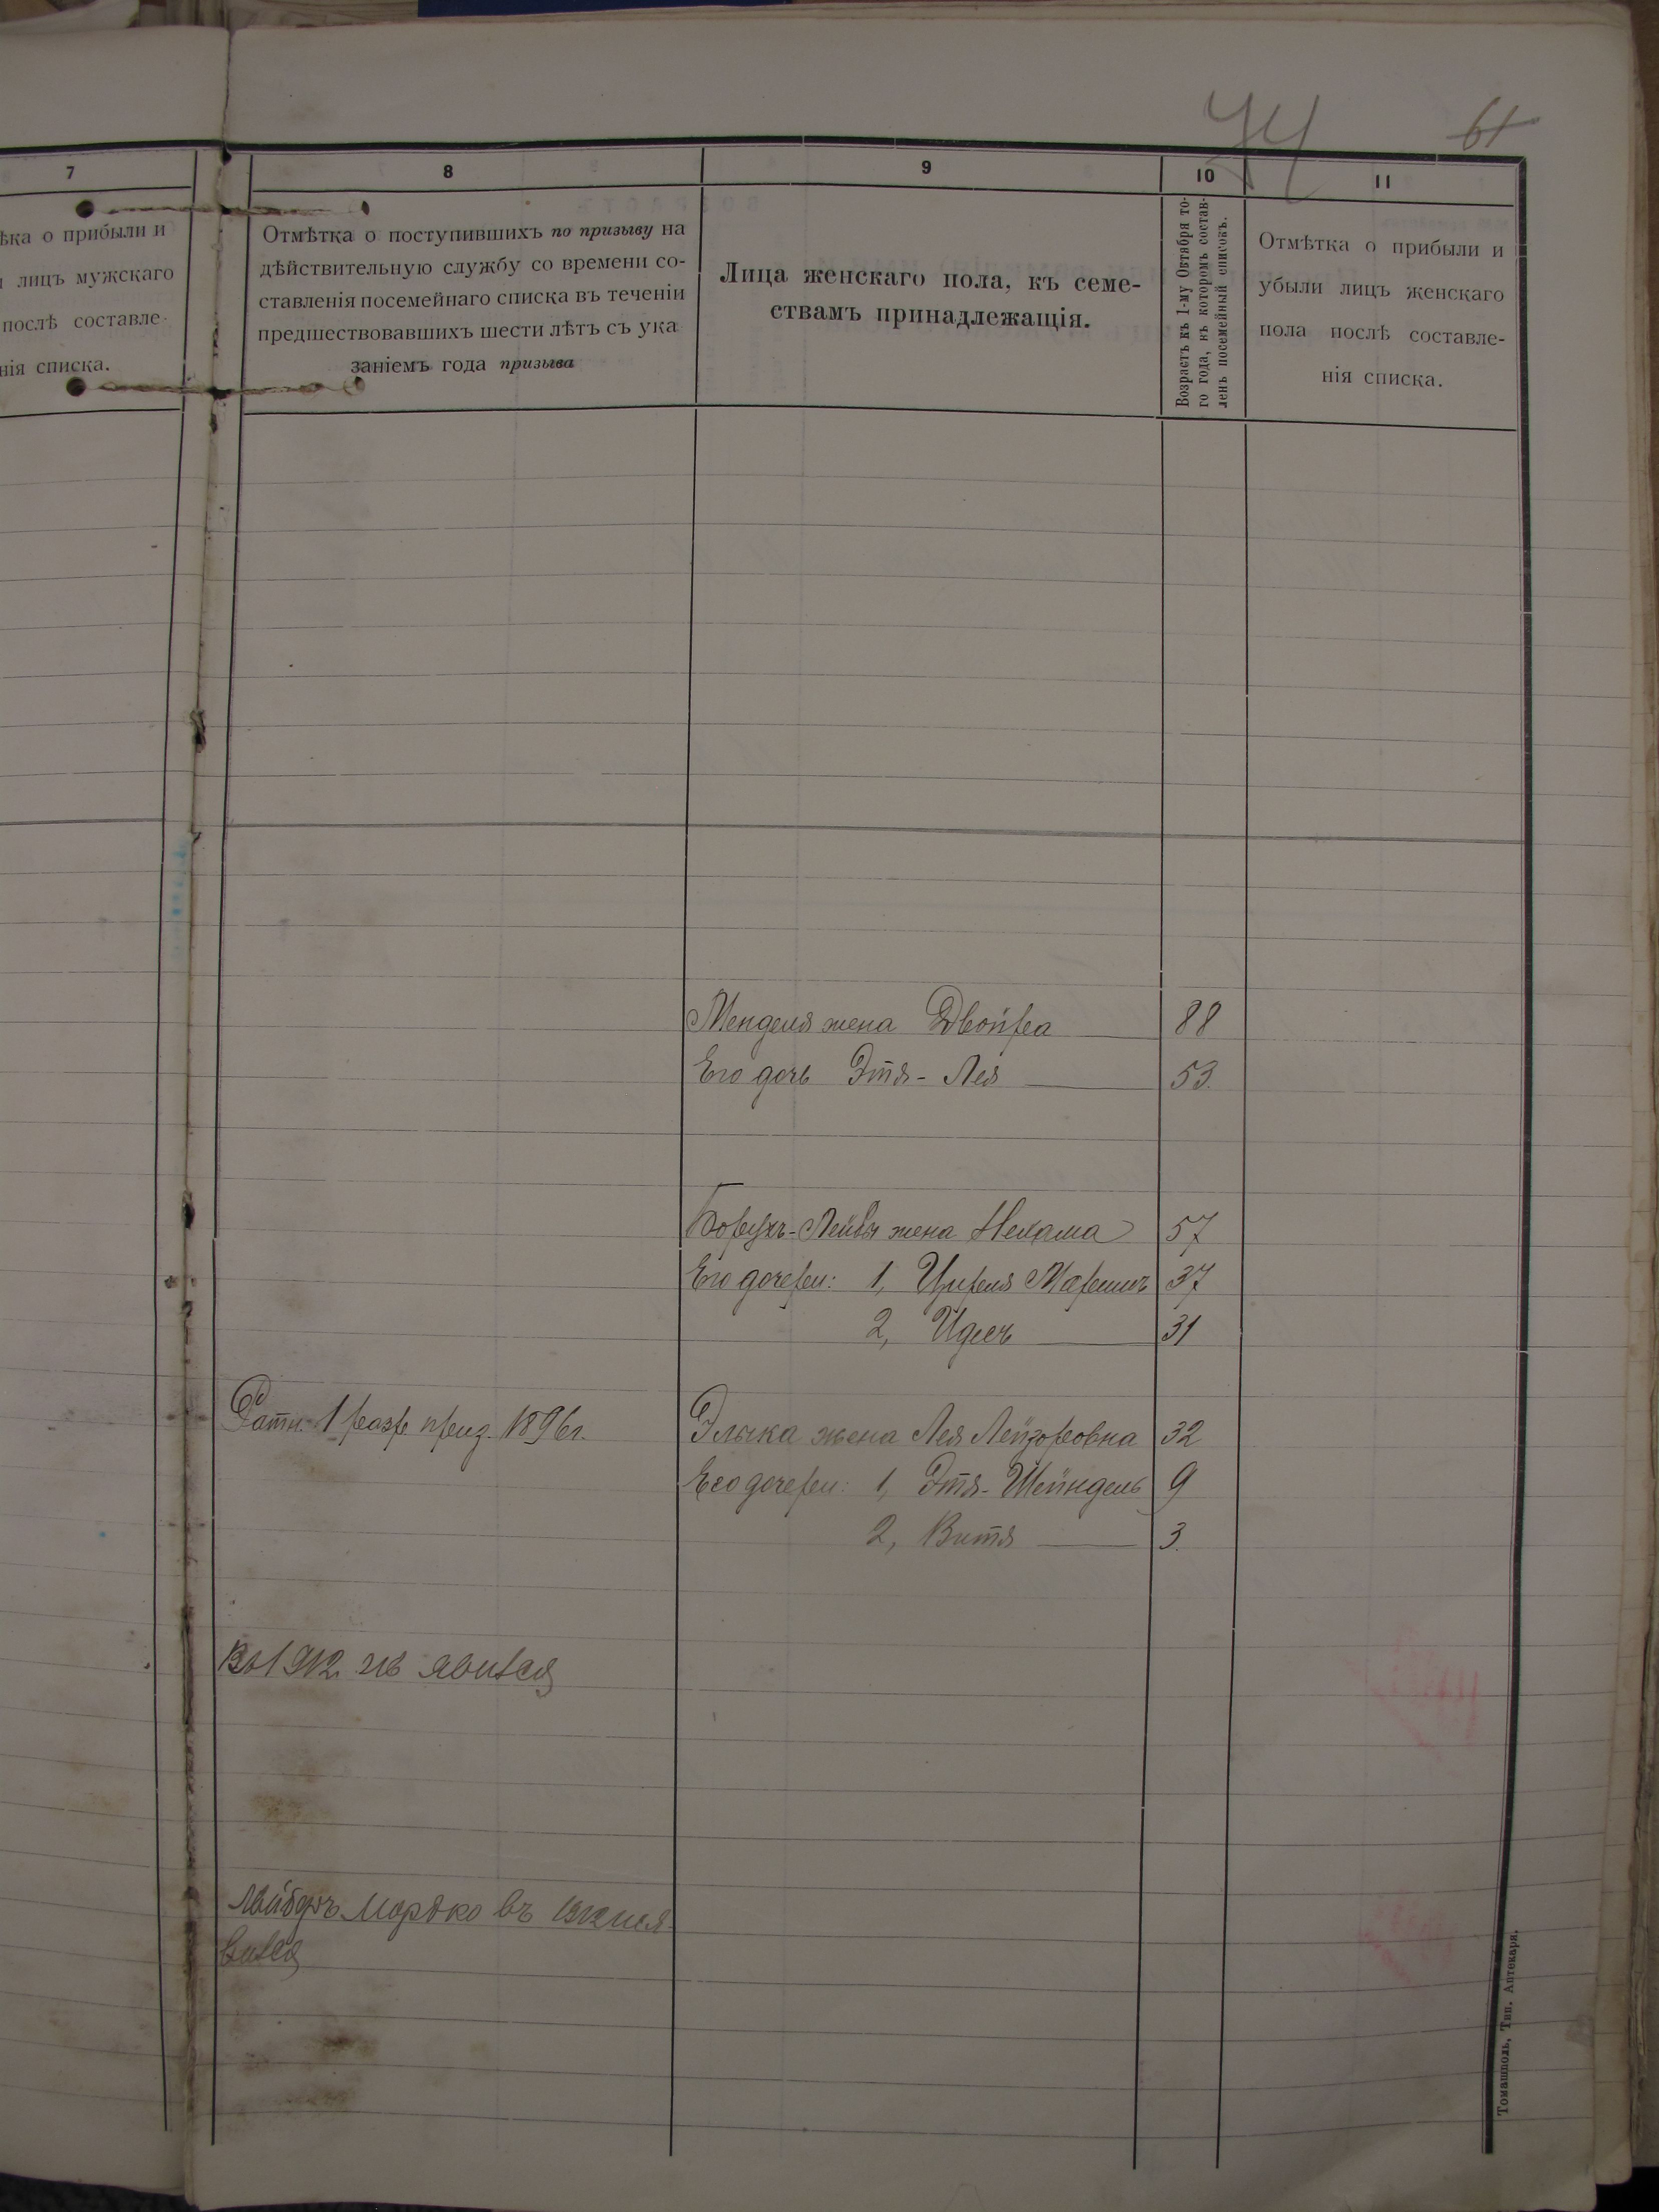 74
61
7
8
9
10
11
ѣка о прибыли и
лицъ мужскаго
послѣ составле-
нія списка.
Отмѣтка о поступившихъ по призыву на
дѣйствительную службу со времени со-
ставленія посемейнаго списка въ теченіи
предшествовавшихъ шести лѣтъ съ ука
заніемъ года призыва
Лица женскаго пола, къ семе-
ствамъ принадлежащія.
Возрастъ къ 1-му Октября то-
го года, въ которомъ состав-
ленъ посемейный списокъ.
Отмѣтка о прибыли и
убыли лицъ женскаго
пола послѣ составле-
нія списка.
Менделя жена Двойра 88
Его дочь Этя-Лея 53.
Борухъ-Лейбы жена Нехама 57
Его дочери: 1, Цирель 37
2, Идесъ 31
Ратн. 1 разр. приз. 1896 г.
Элыка жена Лея Лейзоровна 32
Его дочери: 1, Этя-Шейндель 9
2, Витя 3.
Въ 1912 явился
Мордко въ
вился
Томашполь, Тип. Аптекаря.